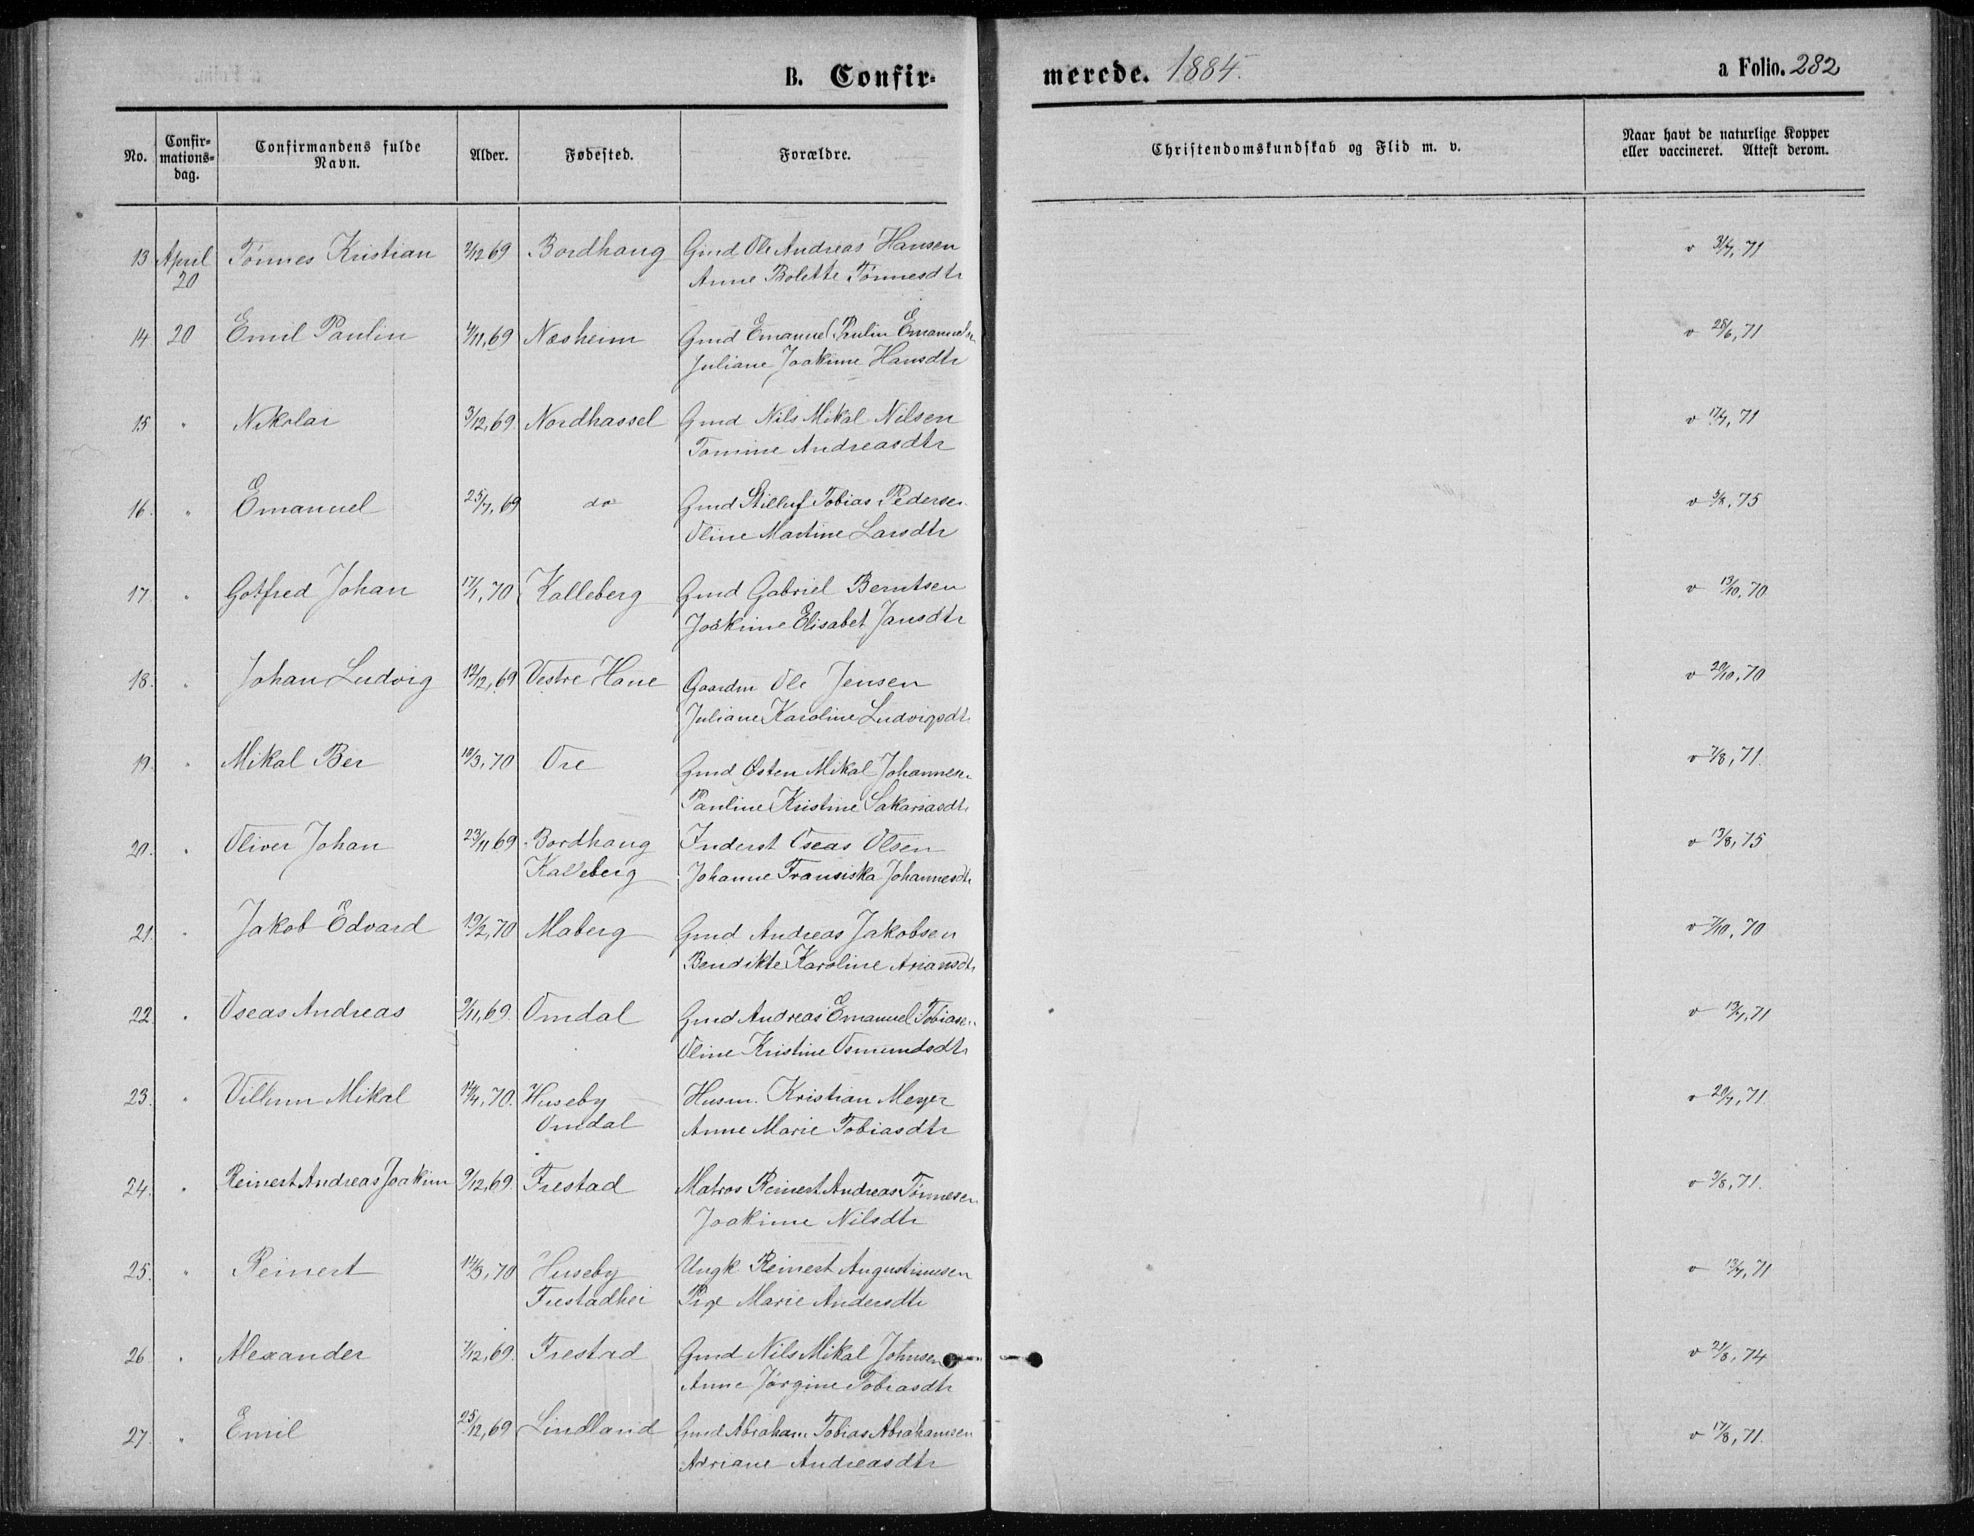 B. Confir-
merede. 1884.
a Folio. 282
No.
Confir-
mations-
dag.
Confirmandens fulde
Navn.
Alder.
Fødested.
Forældre.
Christendomskundskab og Flid m. v.
Naar havt de naturlige Kopper
eller vaccineret. Attest derom.
13 April Tønnes Kristian 2/12 69 Bordhaug Gmd Ole Andreas Hansen v 31/7, 71
20 Anne Bolette Tønnesdtr
14 20 Emil Paulin 4/11, 69 Næsheim Gmd Emanuel Paulin Emanuels v 28/6, 71
Juliane Joakime Hansdtr
15 " Nikolai 3/12, 69 Nordhassel Gmd Nils Mikal Nilsen v 17/7, 71
Tomine Andreasdtr
16. " Emanuel 25/7, 69 do Gmd Stilluf Tobias Pedersen v 5/8, 75
Oline Martine Larsdtr
17 " Gotfred Johan 17/1, 70 Kalleberg Gmd Gabriel Berntsen v 13/10, 70
Joakime Elisabet Jansdtr
18. " Johan Ludvig 12/12, 69 Vestre Haue Gaardm Ole Jensen v 20/10, 70
Juliane Karoline Ludvigsdtr
19. " Mikal Ber 10/3, 70 Ore Gmd Østen Mikal Johannesen v 7/8, 71
Pauline Kristine Sakariasdtr
20. " Oliver Johan 23/11 69 Bordhaug Inderst Oseas Olsen v 13/8, 75
Kalleberg Johanne Fransiska Johannesdtr
21. " Jakob Edvard 19/2, 70 Maberg Gmd Andreas Jakobsen v 7/10, 70
Bendikte Karoline Ariansdtr
22. " Oseas Andreas 9/11, 69. Omdal Gmd Andreas Emanuel Tobiasen v 13/7, 71
Oline Kristine Osmundsdtr
23. " Villum Mikal 14/4, 70. Huseby Husm. Kristian Meyer v 20/7, 71.
Omdal Anne Marie Tobiasdtr
24. " Reinert Andreas Joakim 9/12, 69 Frestad Matros Reinert Andreas Tønnesen v 9/8, 71.
Joakime Nilsdtr
25. " Reinert 14/3, 70 Huseby Ungk. Reinert Augustinusen v 13/7, 71
Frestadhei Pige Marie Andersdtr
26 " Alexander 7/12, 69. Frestad Gmd Nils Mikal Johnsen v 21/8, 74
Anne Jørgine Tobiasdtr
27 " Emil 25/12, 69 Lindland Gmd Abraham Tobias Abrahamsen v 17/8, 71.
Adriane Andreasdtr